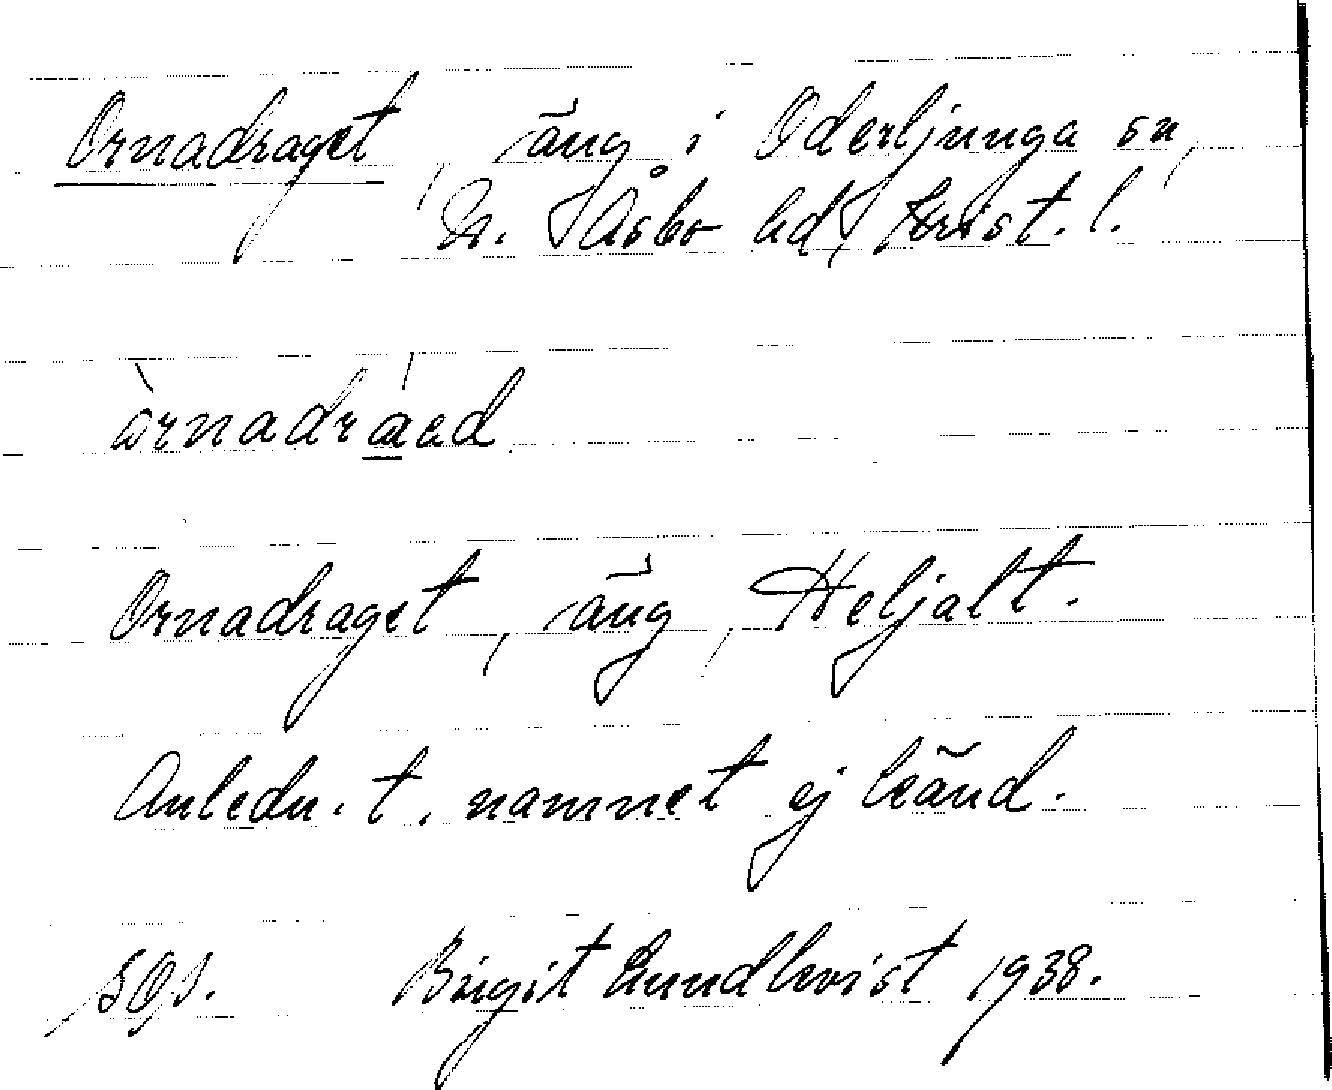 Ornadraget, äng i Oderljunga sn,
N. Åsbo hd, Krist. l.
òrnadráad
Ornadraget, äng, Heljalt.
Anledn. t. namnet ej känd.
SOI. Birgit Lundkvist 1938.